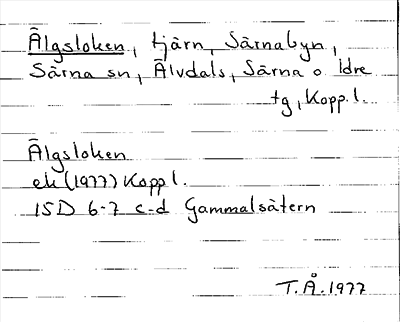 Älgsloken, tjärn, Särnabyn,
Särna sn, Älvdals, Särna o Idre
tg, Kopp.l.
Älgsloken
ek (1977) Kopp l.
15D 6-7 c-d Gammalsätern
T.Å.1977